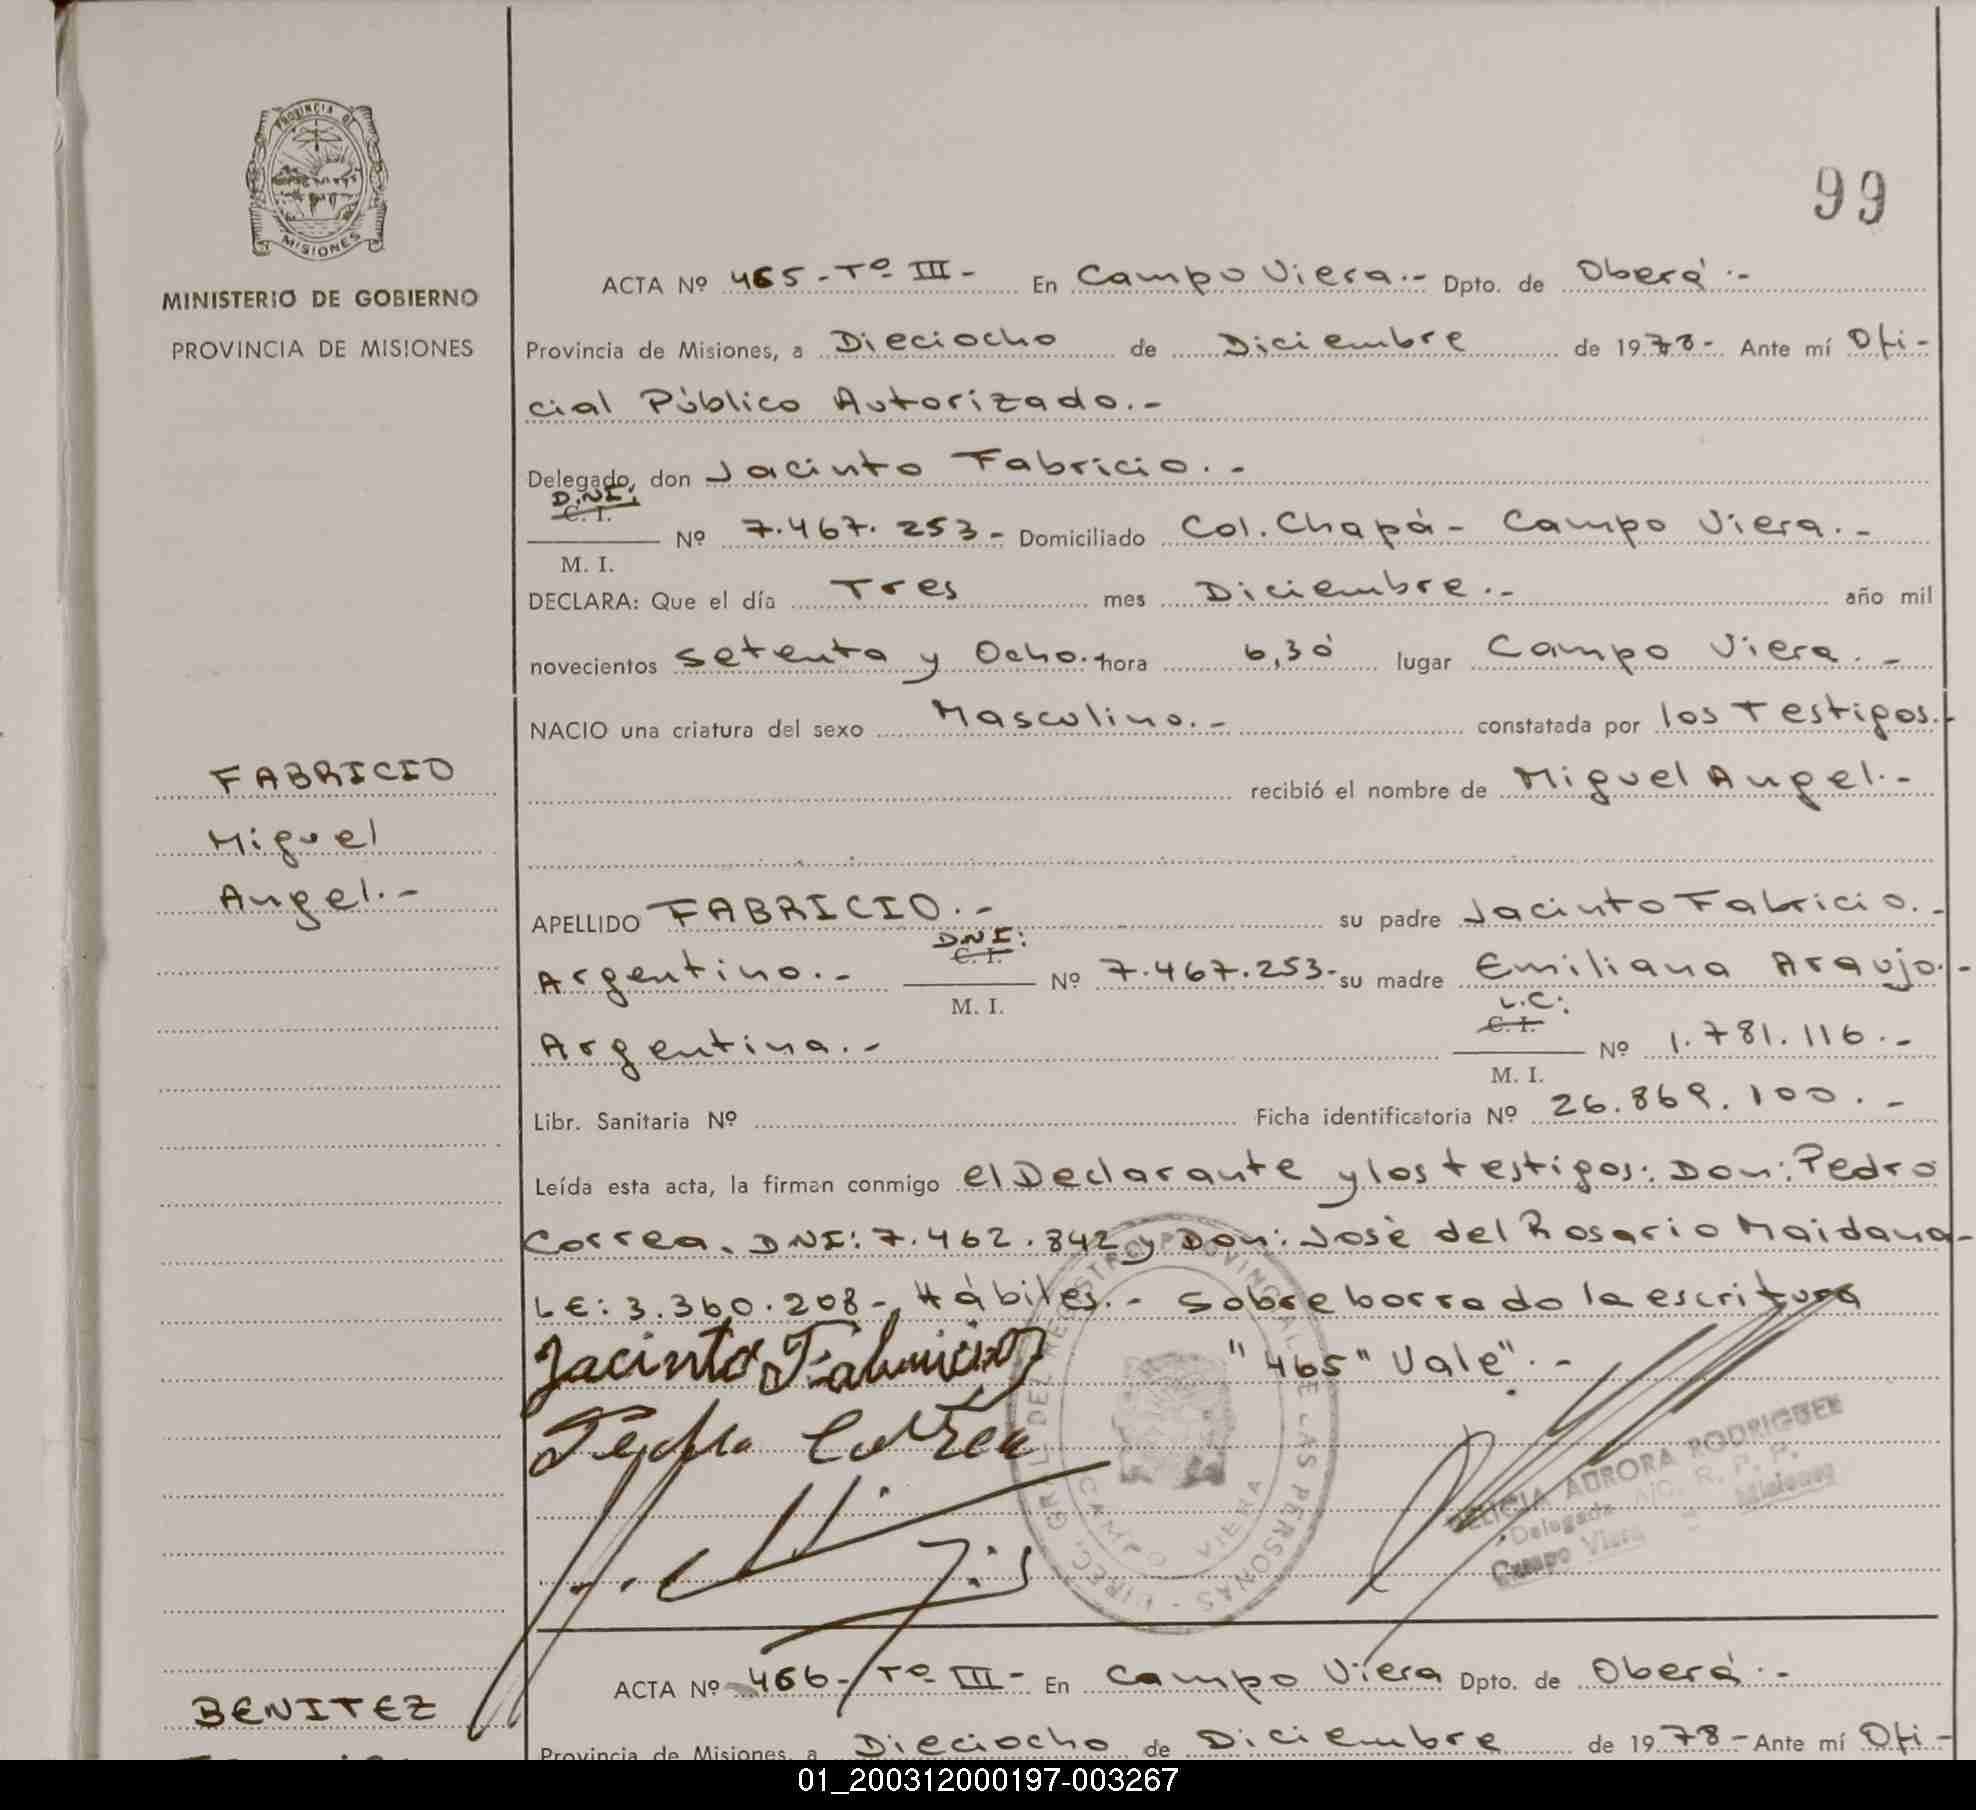 PROVINCIA DE
MISIONES
MINISTERIO DE GOBIERNO
PROVINCIA DE MISIONES
99
ACTA Nº 465-Tº III- En Campo Viera.- Dpto. de Oberá.-
Provincia de Misiones, a Dieciocho de Diciembre de 1978- Ante mí Ofi-
cial Público Autorizado.-
Delegado, don Jacinto Fabricio.-
D.N.I:
C. I.
Nº 7.467.253- Domiciliado Col. Chapá- Campo Viera.-
M. I.
DECLARA: Que el día Tres mes Diciembre.- año mil
novecientos setenta y Ocho.- hora 6,30 lugar Campo Viera.-
NACIO una criatura del sexo Masculino.- constatada por los Testigos.-
FABRICIO
recibió el nombre de Miguel Angel.-
Miguel
Angel.-
APELLIDO FABRICIO.- su padre Jacinto Fabricio.-
DNI:
C. I.
Argentino.- Nº 7.467.253- su madre Emiliana Araujo.-
M. I.
L.C:
C. I.
Argentina.- Nº 1.781.116.-
M. I.
Libr. Sanitaria Nº Ficha identificatoria Nº 26.869.100.-
Leída esta acta, la firman conmigo el Declarante y los testigos: Don: Pedro
Correa. DNI: 7.462.842 y Don: José del Rosario Maidana-
LE: 3.360.208-, Hábiles.- Sobre borrado la escritura
"465" Vale".-
Jacinto Fabricio
Pedro Correa
DIREC. GRAL. DEL REGISTRO PROVINCIAL DE LAS PERSONAS -
CAMPO VIERA
AURORA RODRIGUEZ
Delegada A/C. R. P. P.
Campo Viera - Misiones
ACTA Nº 466- Tº III- En Campo Viera Dpto. de Oberá.-
BENITEZ
Provincia de Misiones, a Dieciocho de Diciembre de 1978- Ante mí Ofi-
01_200312000197-003267